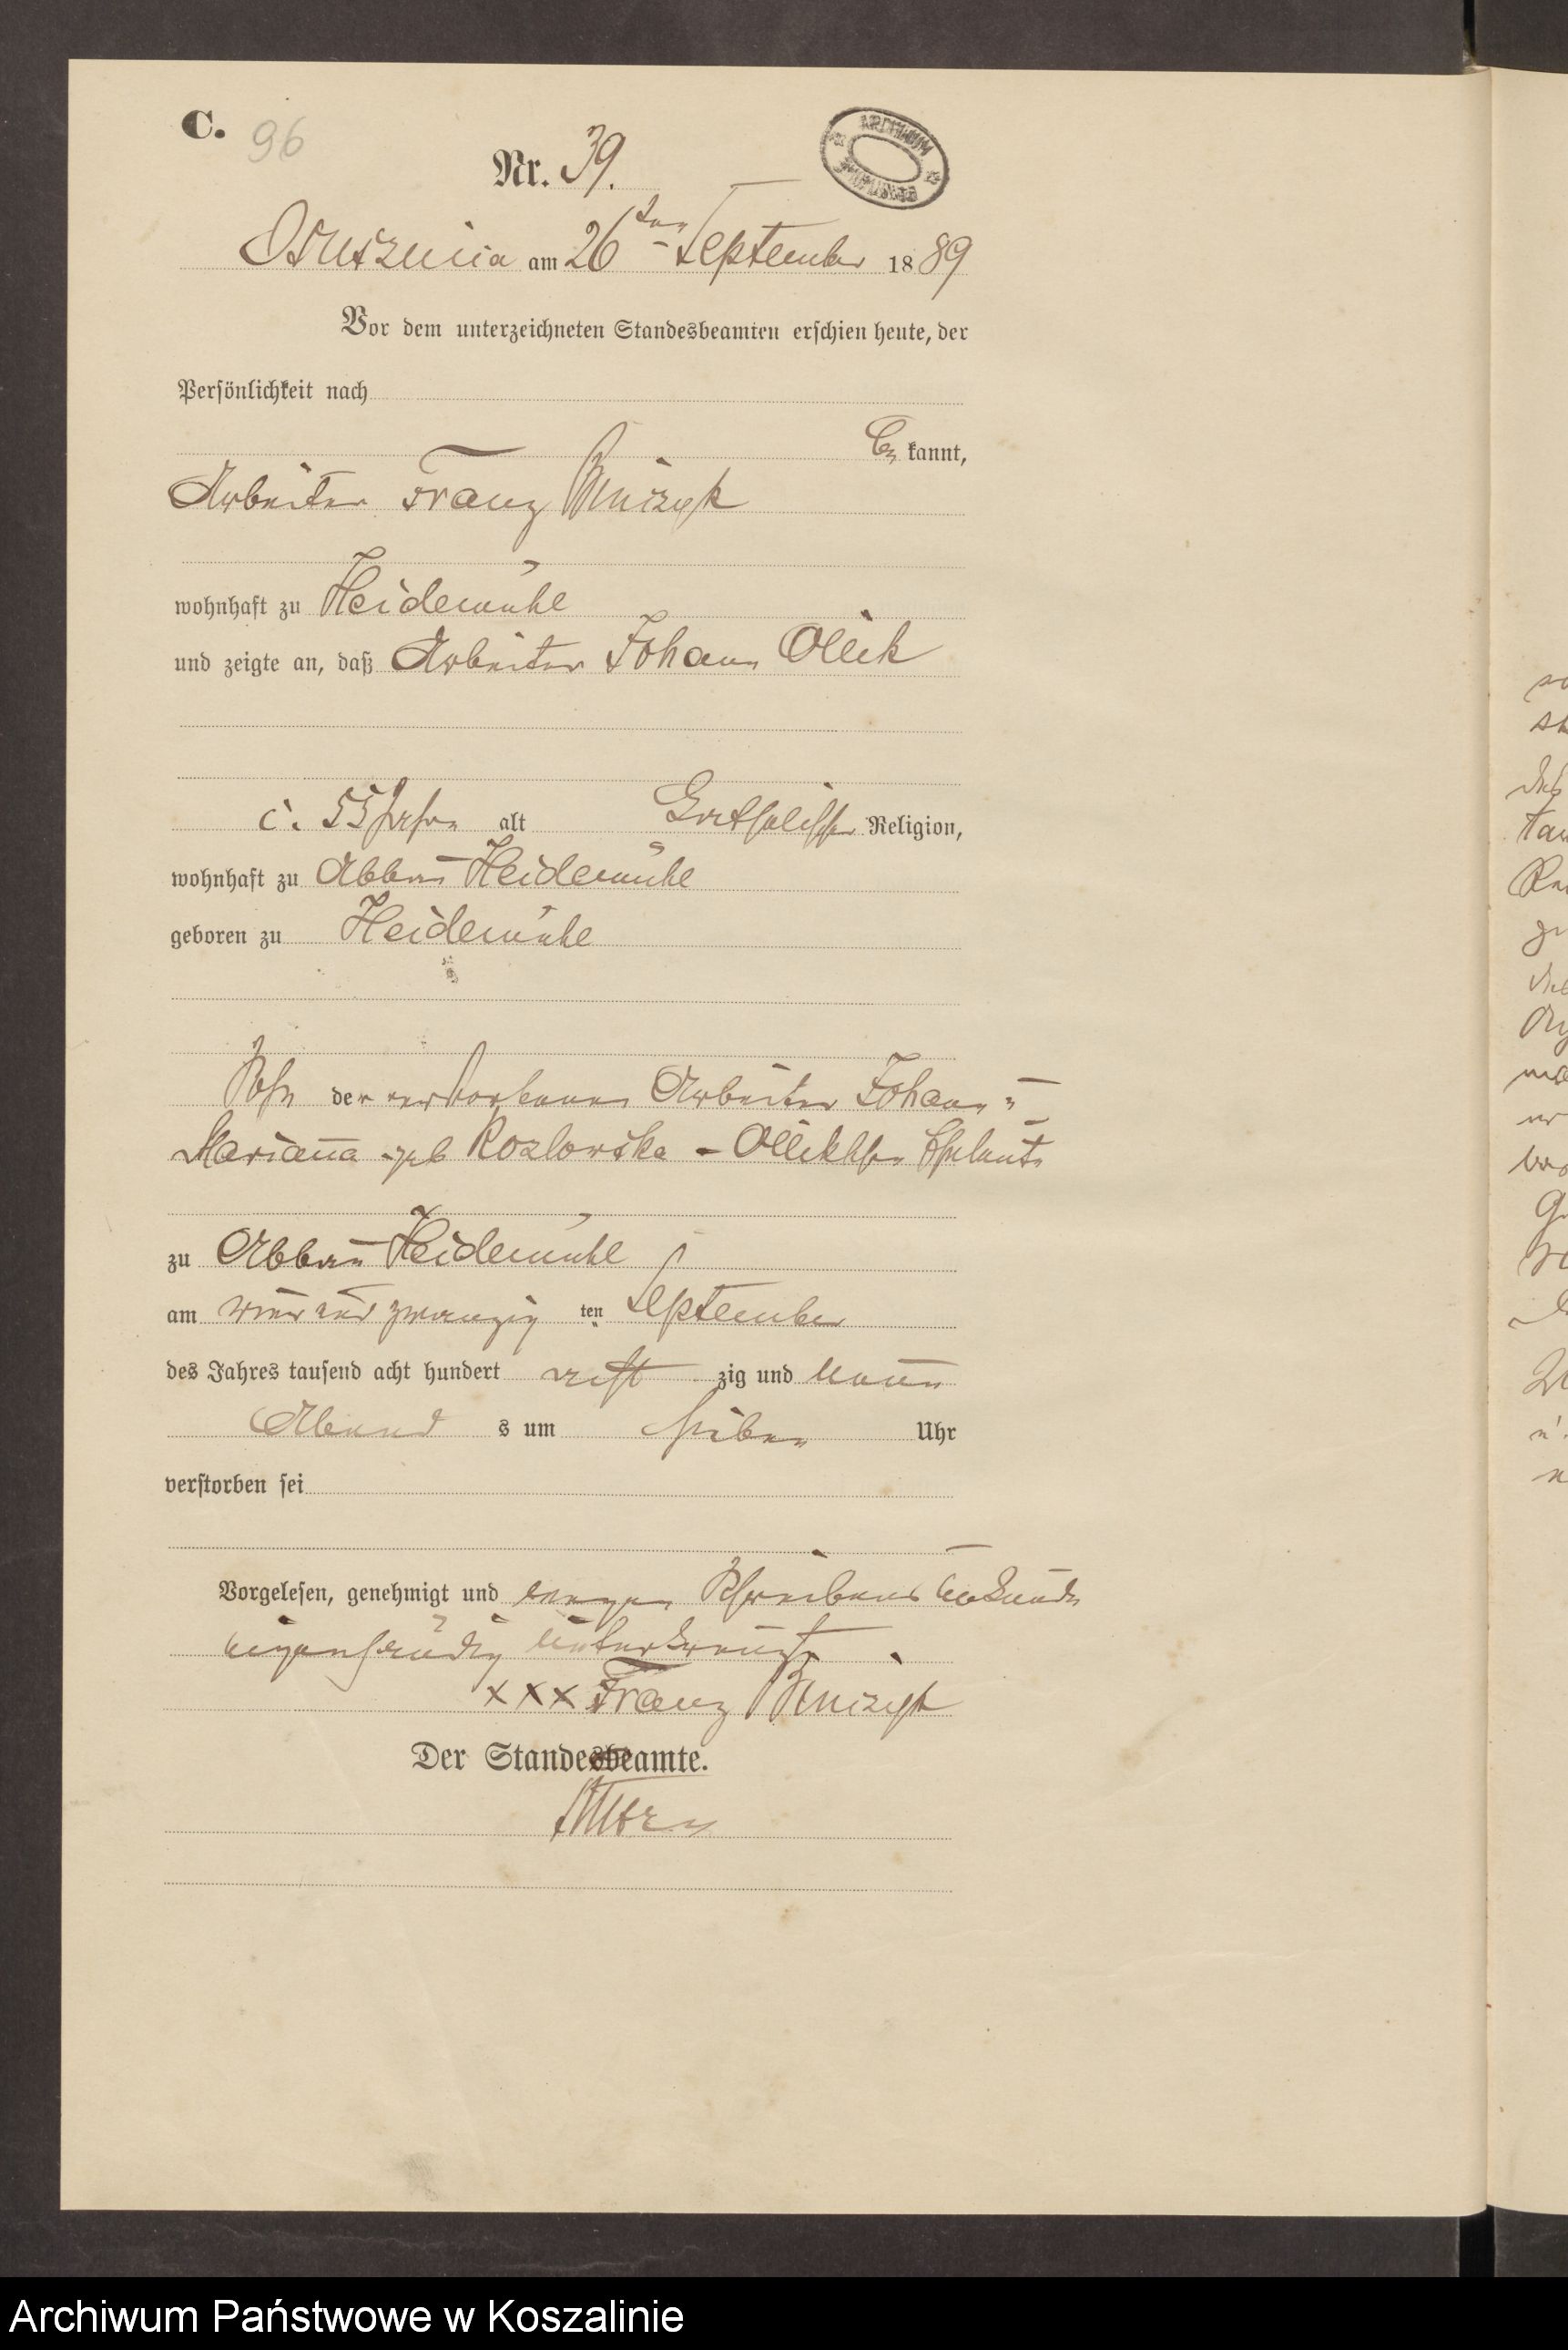 C. 96
Nr. 39.
ARCHIWUM
Osuszniça am 26ten September 1889
Vor dem unterzeichneten Standesbeamten erschien heute, der
Persönlichkeit nach
be kannt,
Arbeiter Franz
wohnhaft zu Heidemühle
und zeigte an, daß Arbeiter Johann Ollik
c. 55 Jahre alt Katholischer Religion,
wohnhaft zu Abbau Heidemühle
geboren zu Heidemühle
Sohn der verstorbenen Arbeiter Johann u
Marianna geb Kozlowska - Ollikschen Eheleute
zu Abbau Heidemühle
am vier und zwanzig ten September
des Jahres tausend acht hundert acht zig und neun
Abend s um sieben Uhr
verstorben sei
Vorgelesen, genehmigt und wegen Schreibens Unkunde
eigenhändig unterkreuzt.
xxx Franz
Der Standesbeamte.
Archiwum Państwowe w Koszalinie